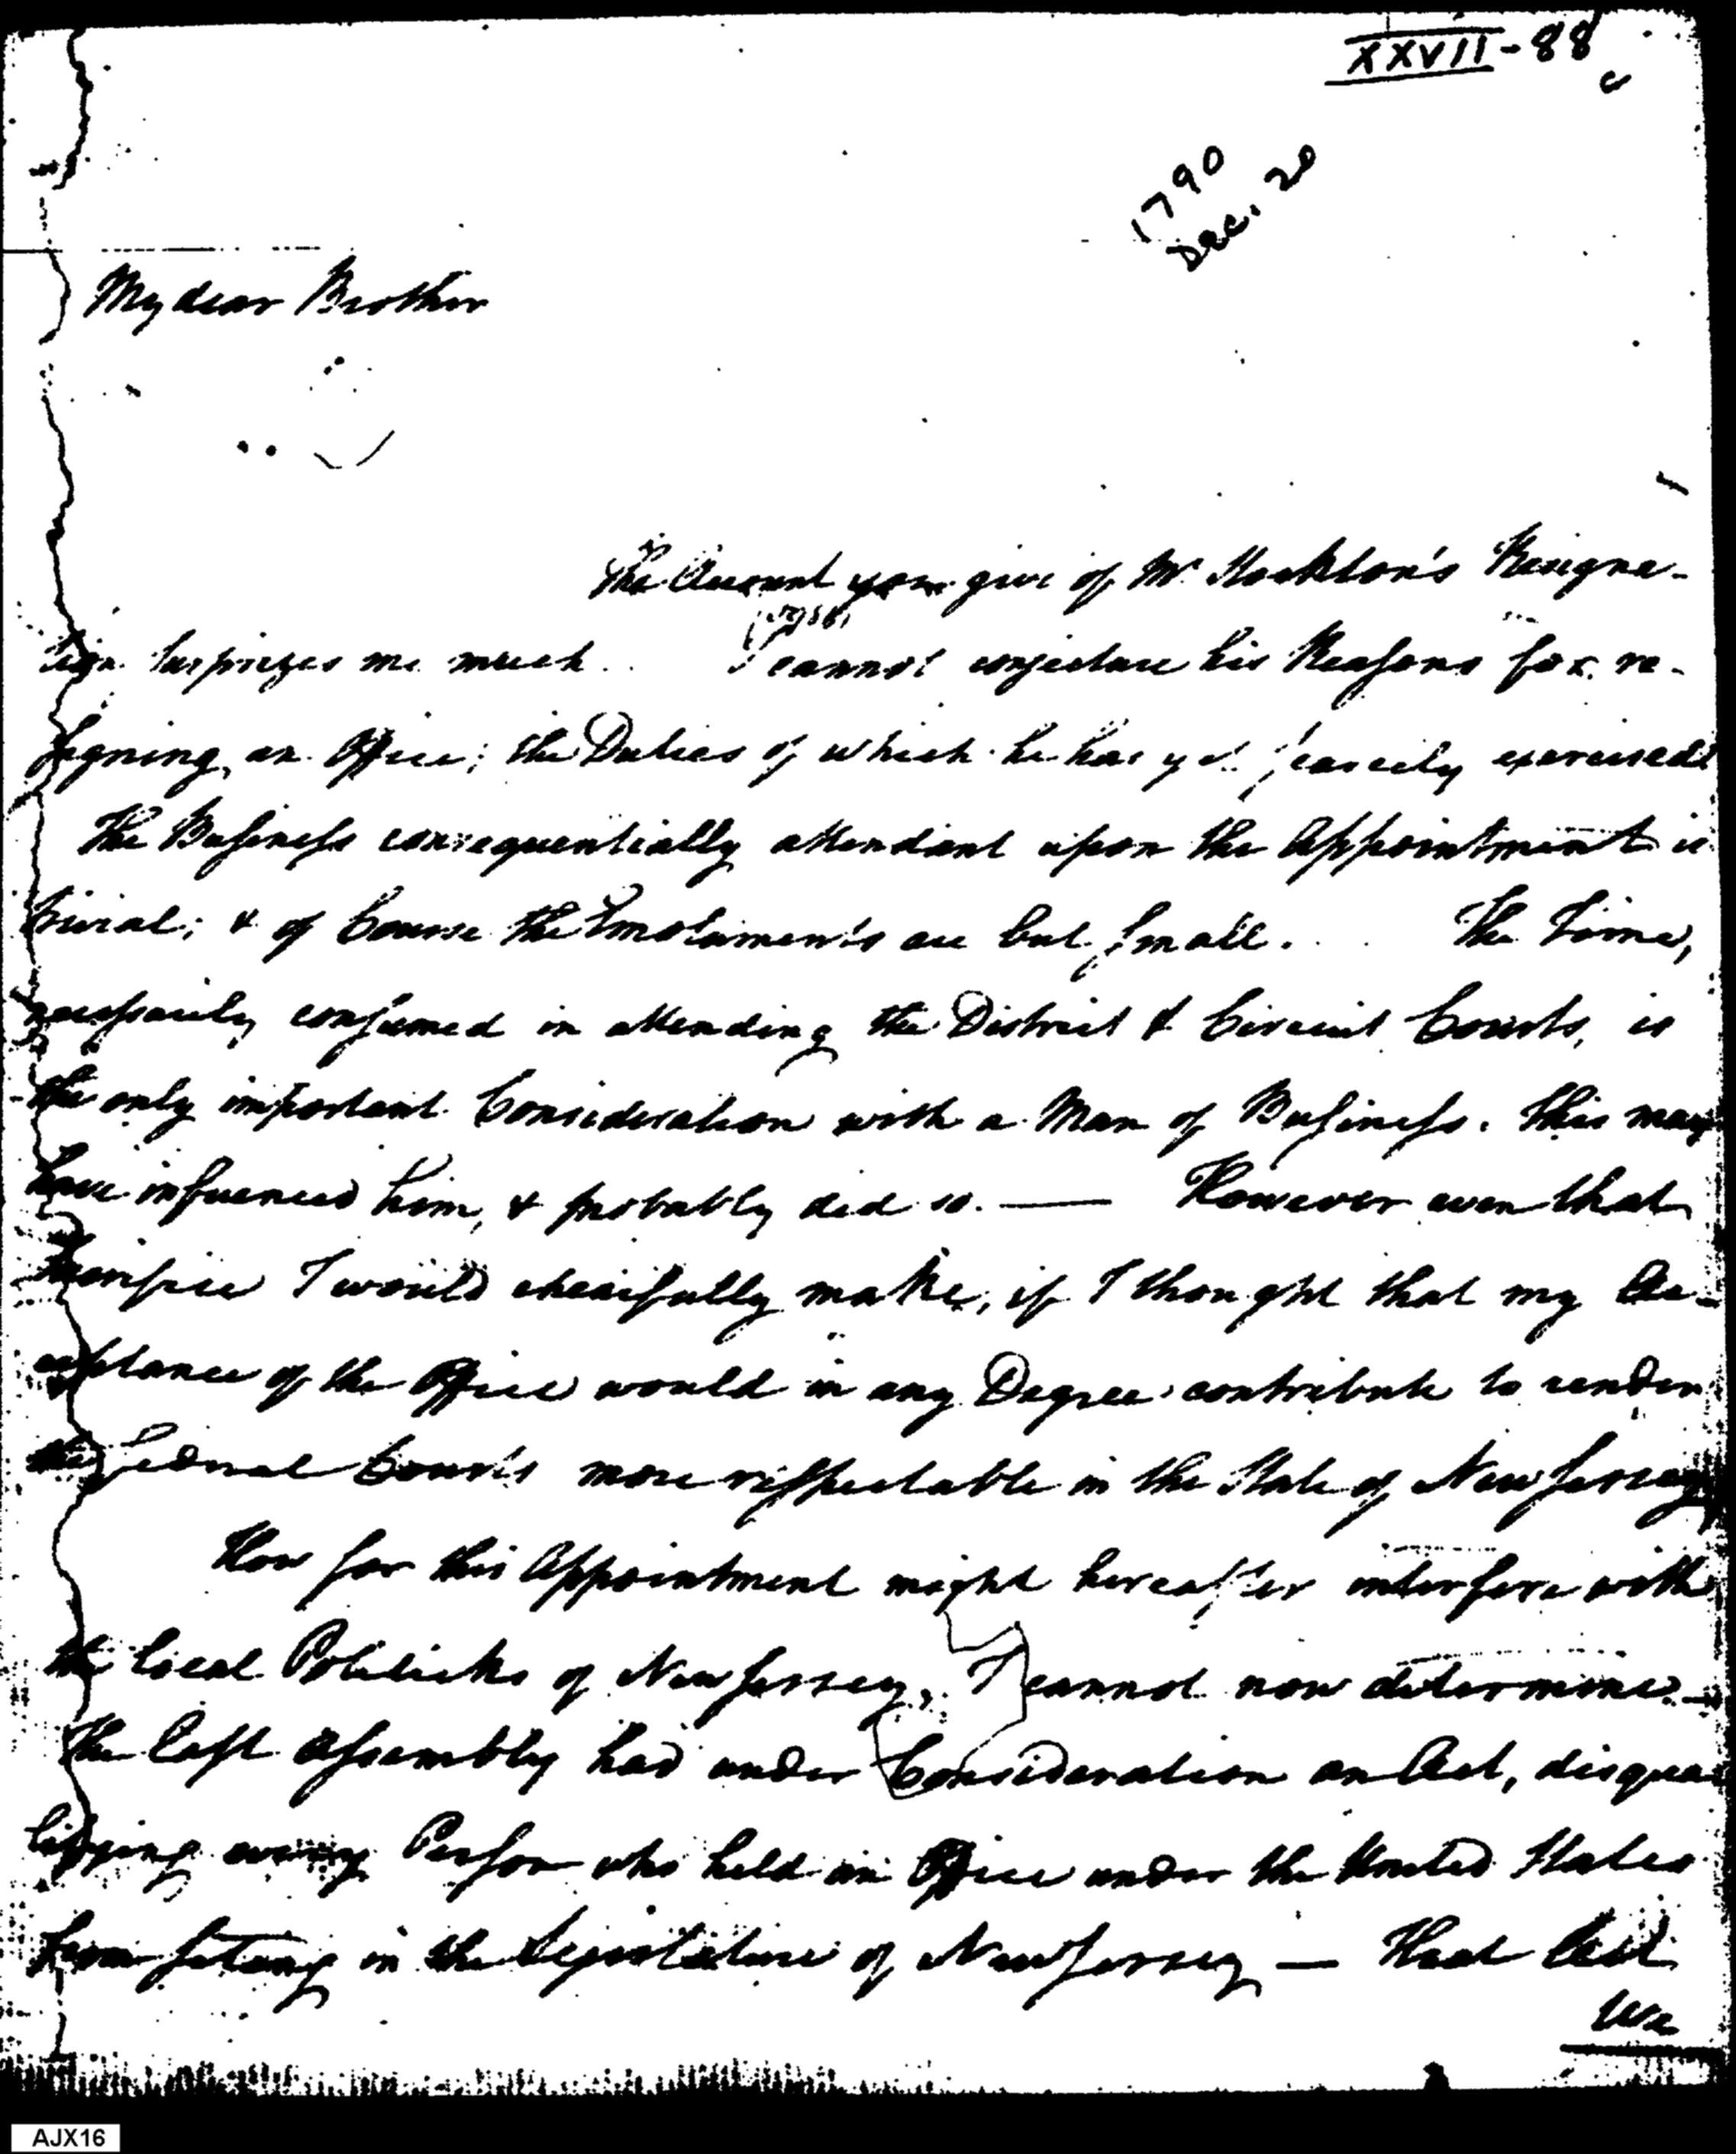 XXVII-88
1790
Dec. 20
My dear Brother
The Account you give of Mr Stockton's Resigna-
tion surprizes me much. I cannot conjecture his Reasons for re-
signing an Office; the Duties of which he has yet scarcely exercised
The Business consequentially attendant upon the Appointment is
trivial; & of Course the Emoluments are but small. The Time,
necessarily consumed in attending the District & Circuit Courts, is
the only important Consideration with a Man of Business. This may
have influenced him, & probably did so. — However even that
Sacrifice I would chearfully make, if I thought that my Ac-
ceptance of the Office would in any Degree contribute to render
the Federal Courts more respectable in the State of New Jersey
How far this Appointment might hereafter interfere with
the local Politicks of New Jersey, I cannot now determine —
The last Assembly had under Consideration an Act, disqua
lifying every Person who held an Office under the United States
from sitting in the Legislature of New Jersey — That Act
AJX16